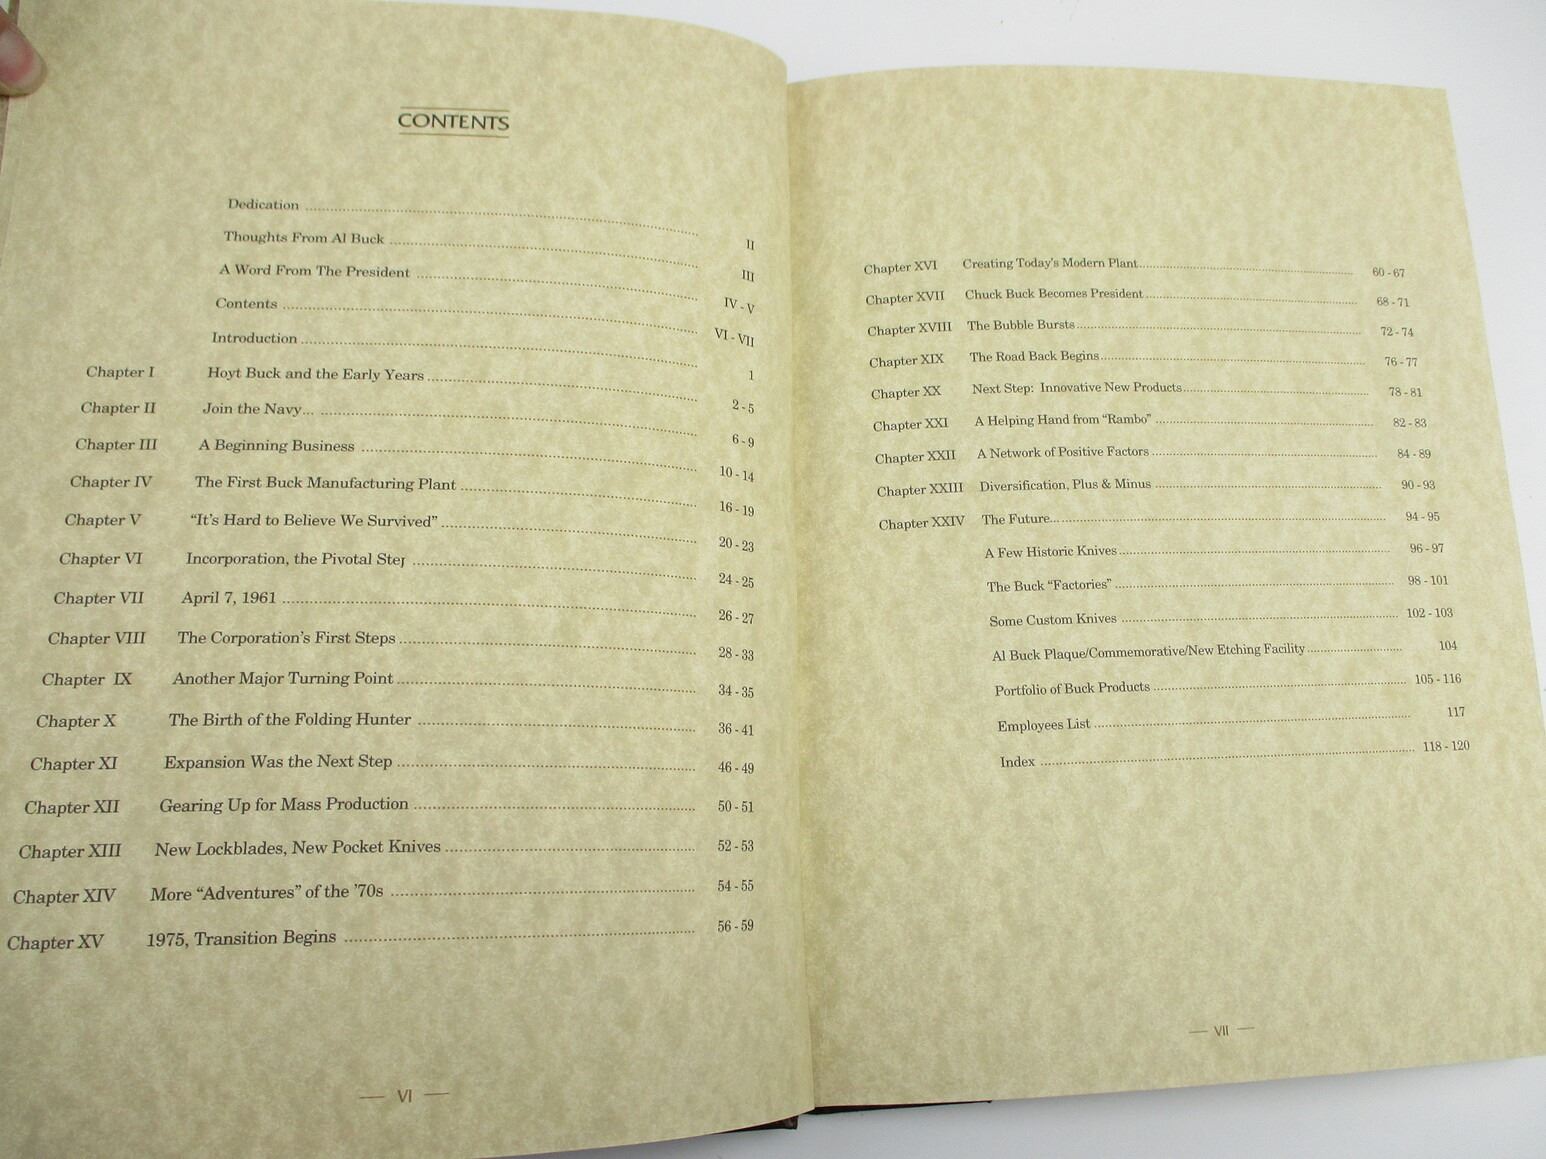 CONTENTS
Dedication ........ II
Thoughts From Al Buck ........ III
A Word From The President ........ IV - V
Contents ........ VI - VII
Introduction ........ 1
Chapter I Hoyt Buck and the Early Years ........ 2 - 5
Chapter II Join the Navy... ........ 6 - 9
Chapter III A Beginning Business ........ 10 - 14
Chapter IV The First Buck Manufacturing Plant ........ 16 - 19
Chapter V “It’s Hard to Believe We Survived” ........ 20 - 23
Chapter VI Incorporation, the Pivotal Step ........ 24 - 25
Chapter VII April 7, 1961 ........ 26 - 27
Chapter VIII The Corporation’s First Steps ........ 28 - 33
Chapter IX Another Major Turning Point ........ 34 - 35
Chapter X The Birth of the Folding Hunter ........ 36 - 41
Chapter XI Expansion Was the Next Step ........ 46 - 49
Chapter XII Gearing Up for Mass Production ........ 50 - 51
Chapter XIII New Lockblades, New Pocket Knives ........ 52 - 53
Chapter XIV More “Adventures” of the ’70s ........ 54 - 55
Chapter XV 1975, Transition Begins ........ 56 - 59
— VI —
Chapter XVI Creating Today’s Modern Plant ........ 60 - 67
Chapter XVII Chuck Buck Becomes President ........ 68 - 71
Chapter XVIII The Bubble Bursts ........ 72 - 74
Chapter XIX The Road Back Begins ........ 76 - 77
Chapter XX Next Step: Innovative New Products ........ 78 - 81
Chapter XXI A Helping Hand from “Rambo” ........ 82 - 83
Chapter XXII A Network of Positive Factors ........ 84 - 89
Chapter XXIII Diversification, Plus & Minus ........ 90 - 93
Chapter XXIV The Future... ........ 94 - 95
A Few Historic Knives ........ 96 - 97
The Buck “Factories” ........ 98 - 101
Some Custom Knives ........ 102 - 103
Al Buck Plaque/Commemorative/New Etching Facility ........ 104
Portfolio of Buck Products ........ 105 - 116
Employees List ........ 117
Index ........ 118 - 120
— VII —